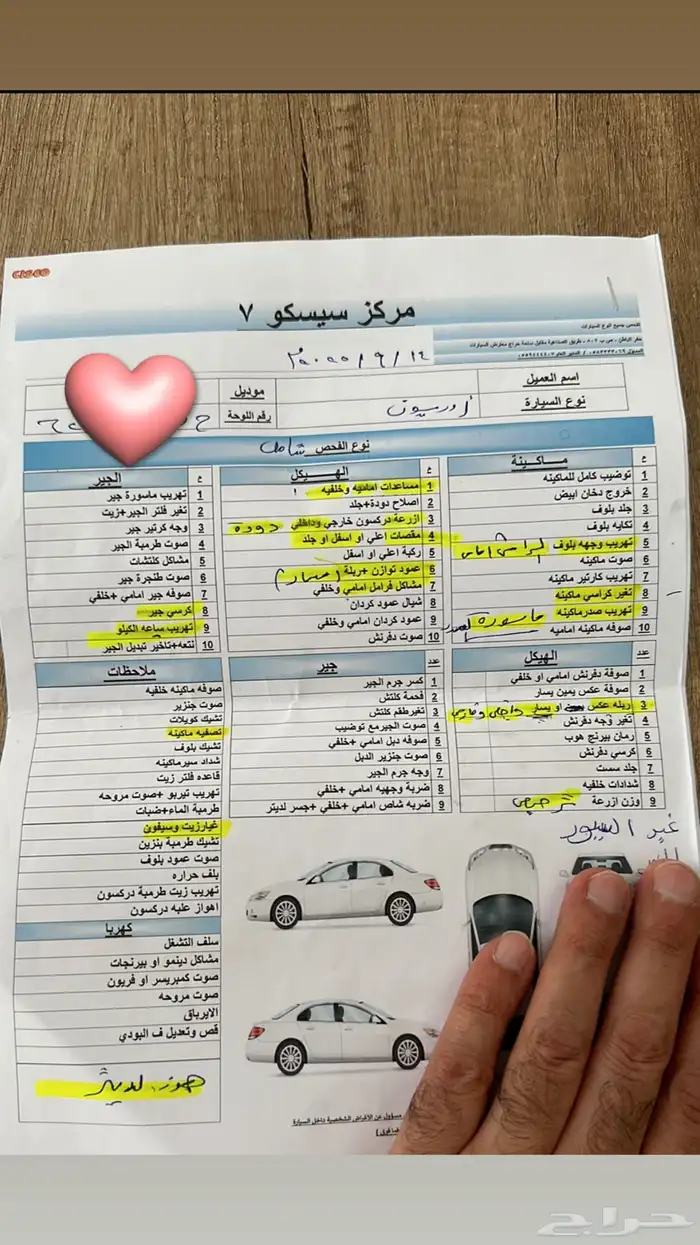 CISCO
مركز سيسكو ٧
لفحص جميع انواع السيارات
اسم العميل
نوع السيارة
موديل
رقم اللوحة
نوع الفحص شامل
ع
ماكينة
1 توضيب كامل للماكينه
2 خروج دخان ابيض
3 جلد بلوف
4 تكايه بلوف
5 تهريب وجهه بلوف
6 صوت ماكينه
7 تهريب كارتير ماكينه
8 تغير كراسي ماكينه
9 تهريب صدرماكينه
10 صوفه ماكينه اماميه
ع
الهيكل
1 مساعدات اماميه وخلفيه
2 اصلاح دودة+جلد
3 ازرعة دركسون خارجي وداخلي دوده
4 مقصات اعلي او اسفل او جلد
5 ركبة اعلي او اسفل
6 عمود توازن +ربلة (مسمار)
7 مشاكل فرامل امامي وخلفي
8 شيال عمود كردان
9 عمود كردان امامي وخلفي
10 صوت دفرنش
ع
الجير
1 تهريب ماسورة جير
2 تغير فلتر الجير+زيت
3 وجه كرتير جير
4 صوت طرمبة الجير
5 مشاكل كلتشات
6 صوت طنجرة جير
7 صوفه جير امامي +خلفي
8 كرسي جير
9 تهريب ساعه الكيلو
10 نتعه+تاخير تبديل الجير
عدد
الهيكل
1 صوفة دفرنش امامي او خلفي
2 صوفة عكس يمين يسار
3 ربله عكس او يسار داخلي و خارجي
4 تغير وجه دفرنش
5 رمان بيرنج هوب
6 كرسي دفرنش
7 جلد سست
8 شدادات خلفيه
9 وزن ازرعة
عدد
جير
1 كسر جرم الجير
2 فحمة كلتش
3 تغيرطقم كلتش
4 صوت الجيرمع توضيب
5 صوفه دبل امامي +خلفي
6 صوت جنزير الدبل
7 وجه جرم الجير
8 ضربة وجهيه امامي +خلفي
9 ضربه شاص امامي +خلفي +جسر لديتر
ملاحظات
صوفه ماكينه خلفيه
صوت جنزير
تشيك كويلات
تصفيه ماكينه
تشيك بلوف
شداد سيرماكينه
قاعده فلتر زيت
تهريب تيربو +صوت مروحه
طرمبة الماء+ضبات
غيارزيت وسيفون
تشيك طرمبة بنزين
صوت عمود بلوف
بلف حراره
تهريب زيت طرمبة دركسون
اهواز علبه دركسون
كهربا
سلف التشغل
مشاكل دينمو او بيرنجات
صوت كمبريسر او فريون
صوت مروحه
الايرباق
قص وتعديل ف البودي
هوز لديتر
غير السيور
مسؤول عن الأغراض الشخصية داخل السيارة
حراج